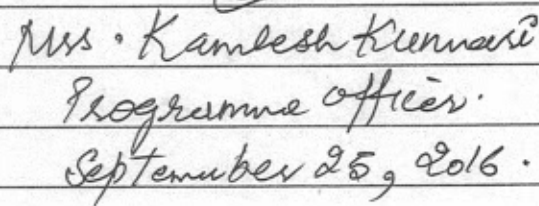 Mrs. Kamlesh Kumari
Programme Officer.
September 25, 2016.